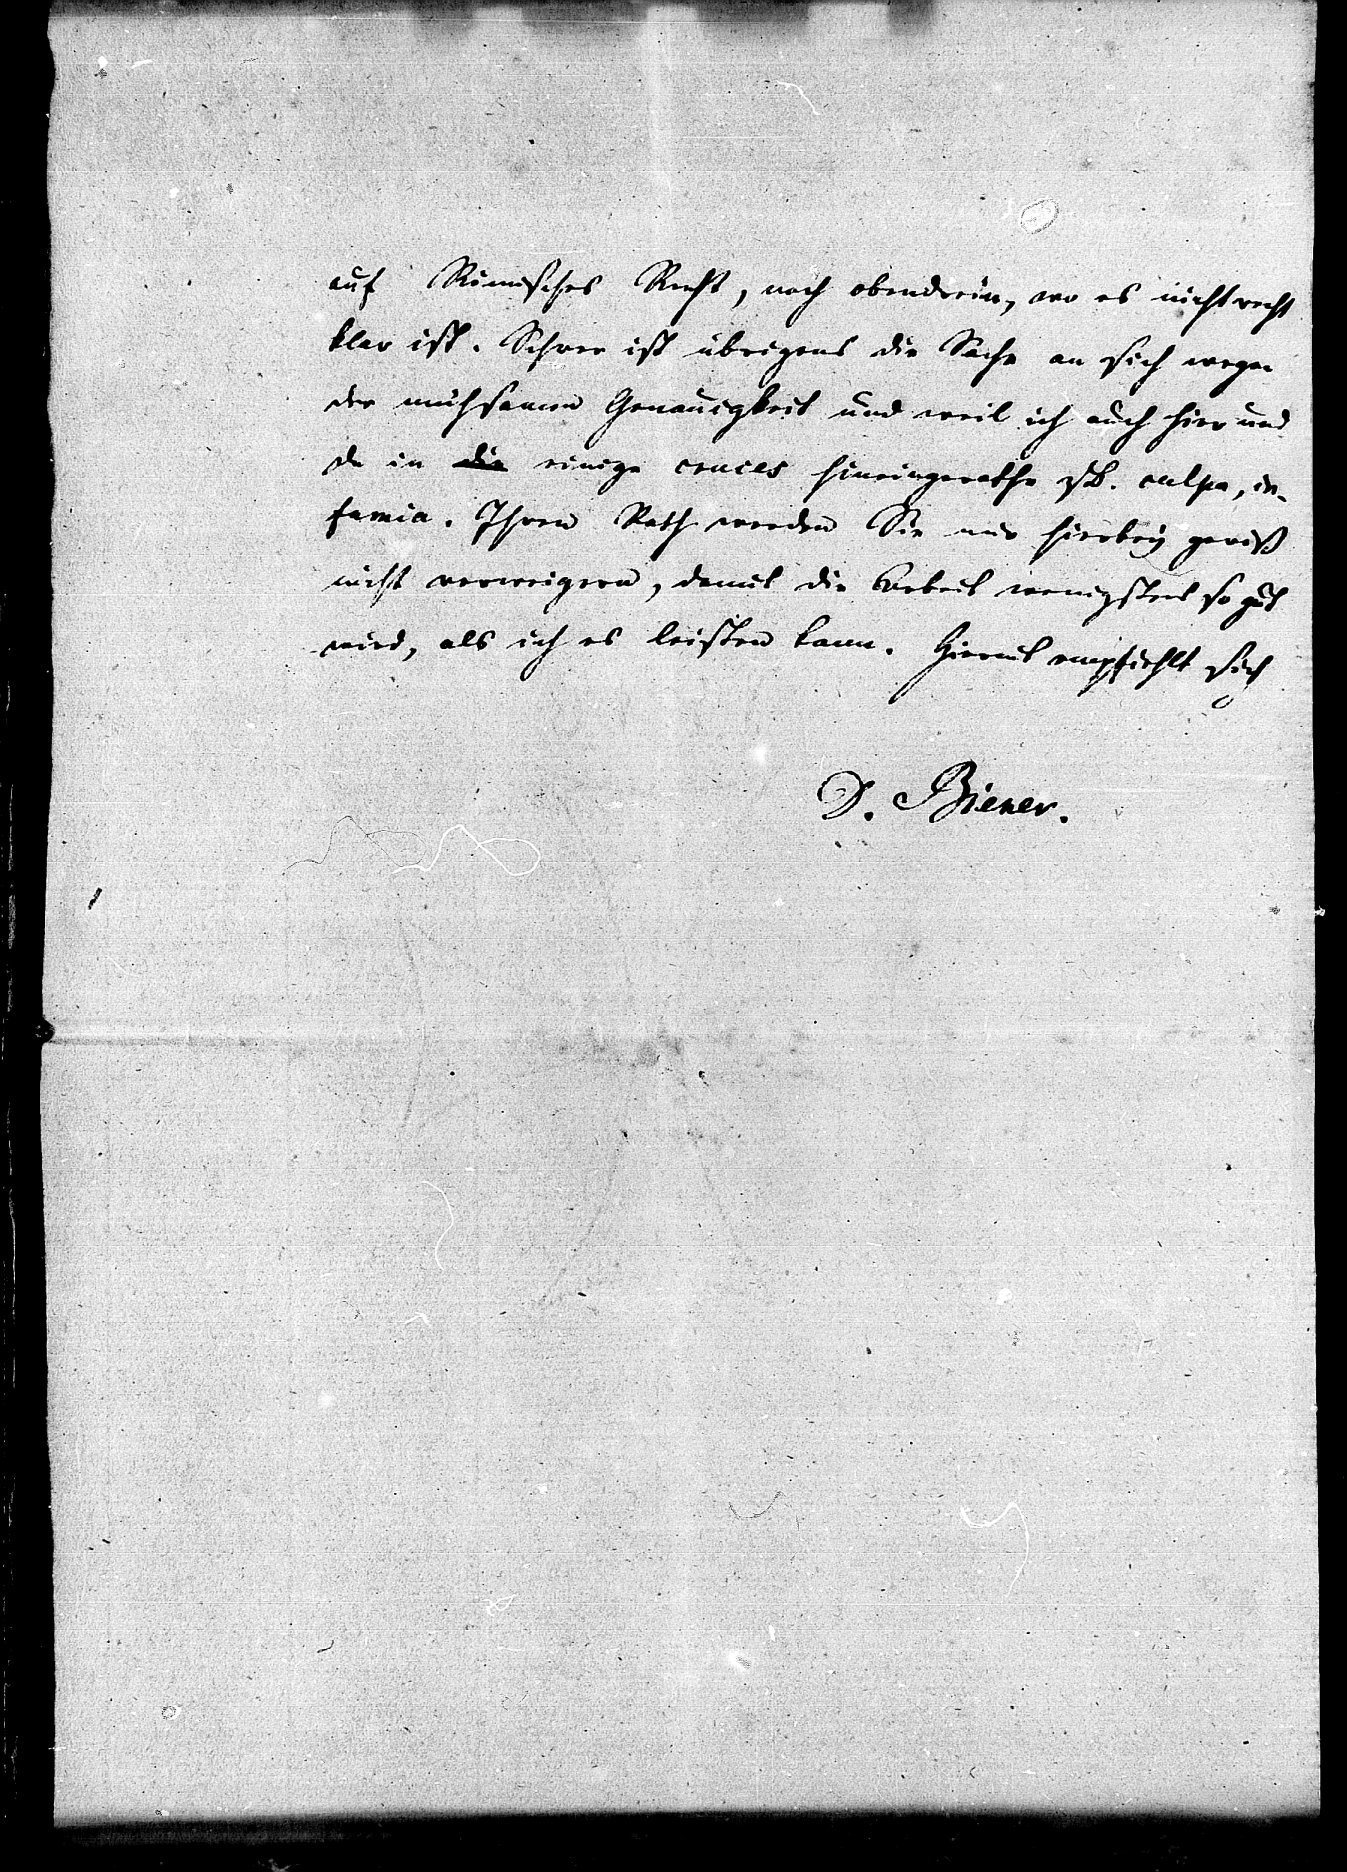 auf Römisches Recht, noch obendrein, wo es nicht recht
klar ist. Schwer ist übrigens die Sache an sich wegen
der mühsamen Genauigkeit und weil ich auch hier und
da in die einige cruces hineingerathe zB. culpa, in-
famia. Ihren Rath werden Sie mir hierbey gewiß
nicht verweigern, damit die Arbeit wenigstens so gut
wird, als ich es leisten kann. Hiermit empfiehlt sich
D. Biener.